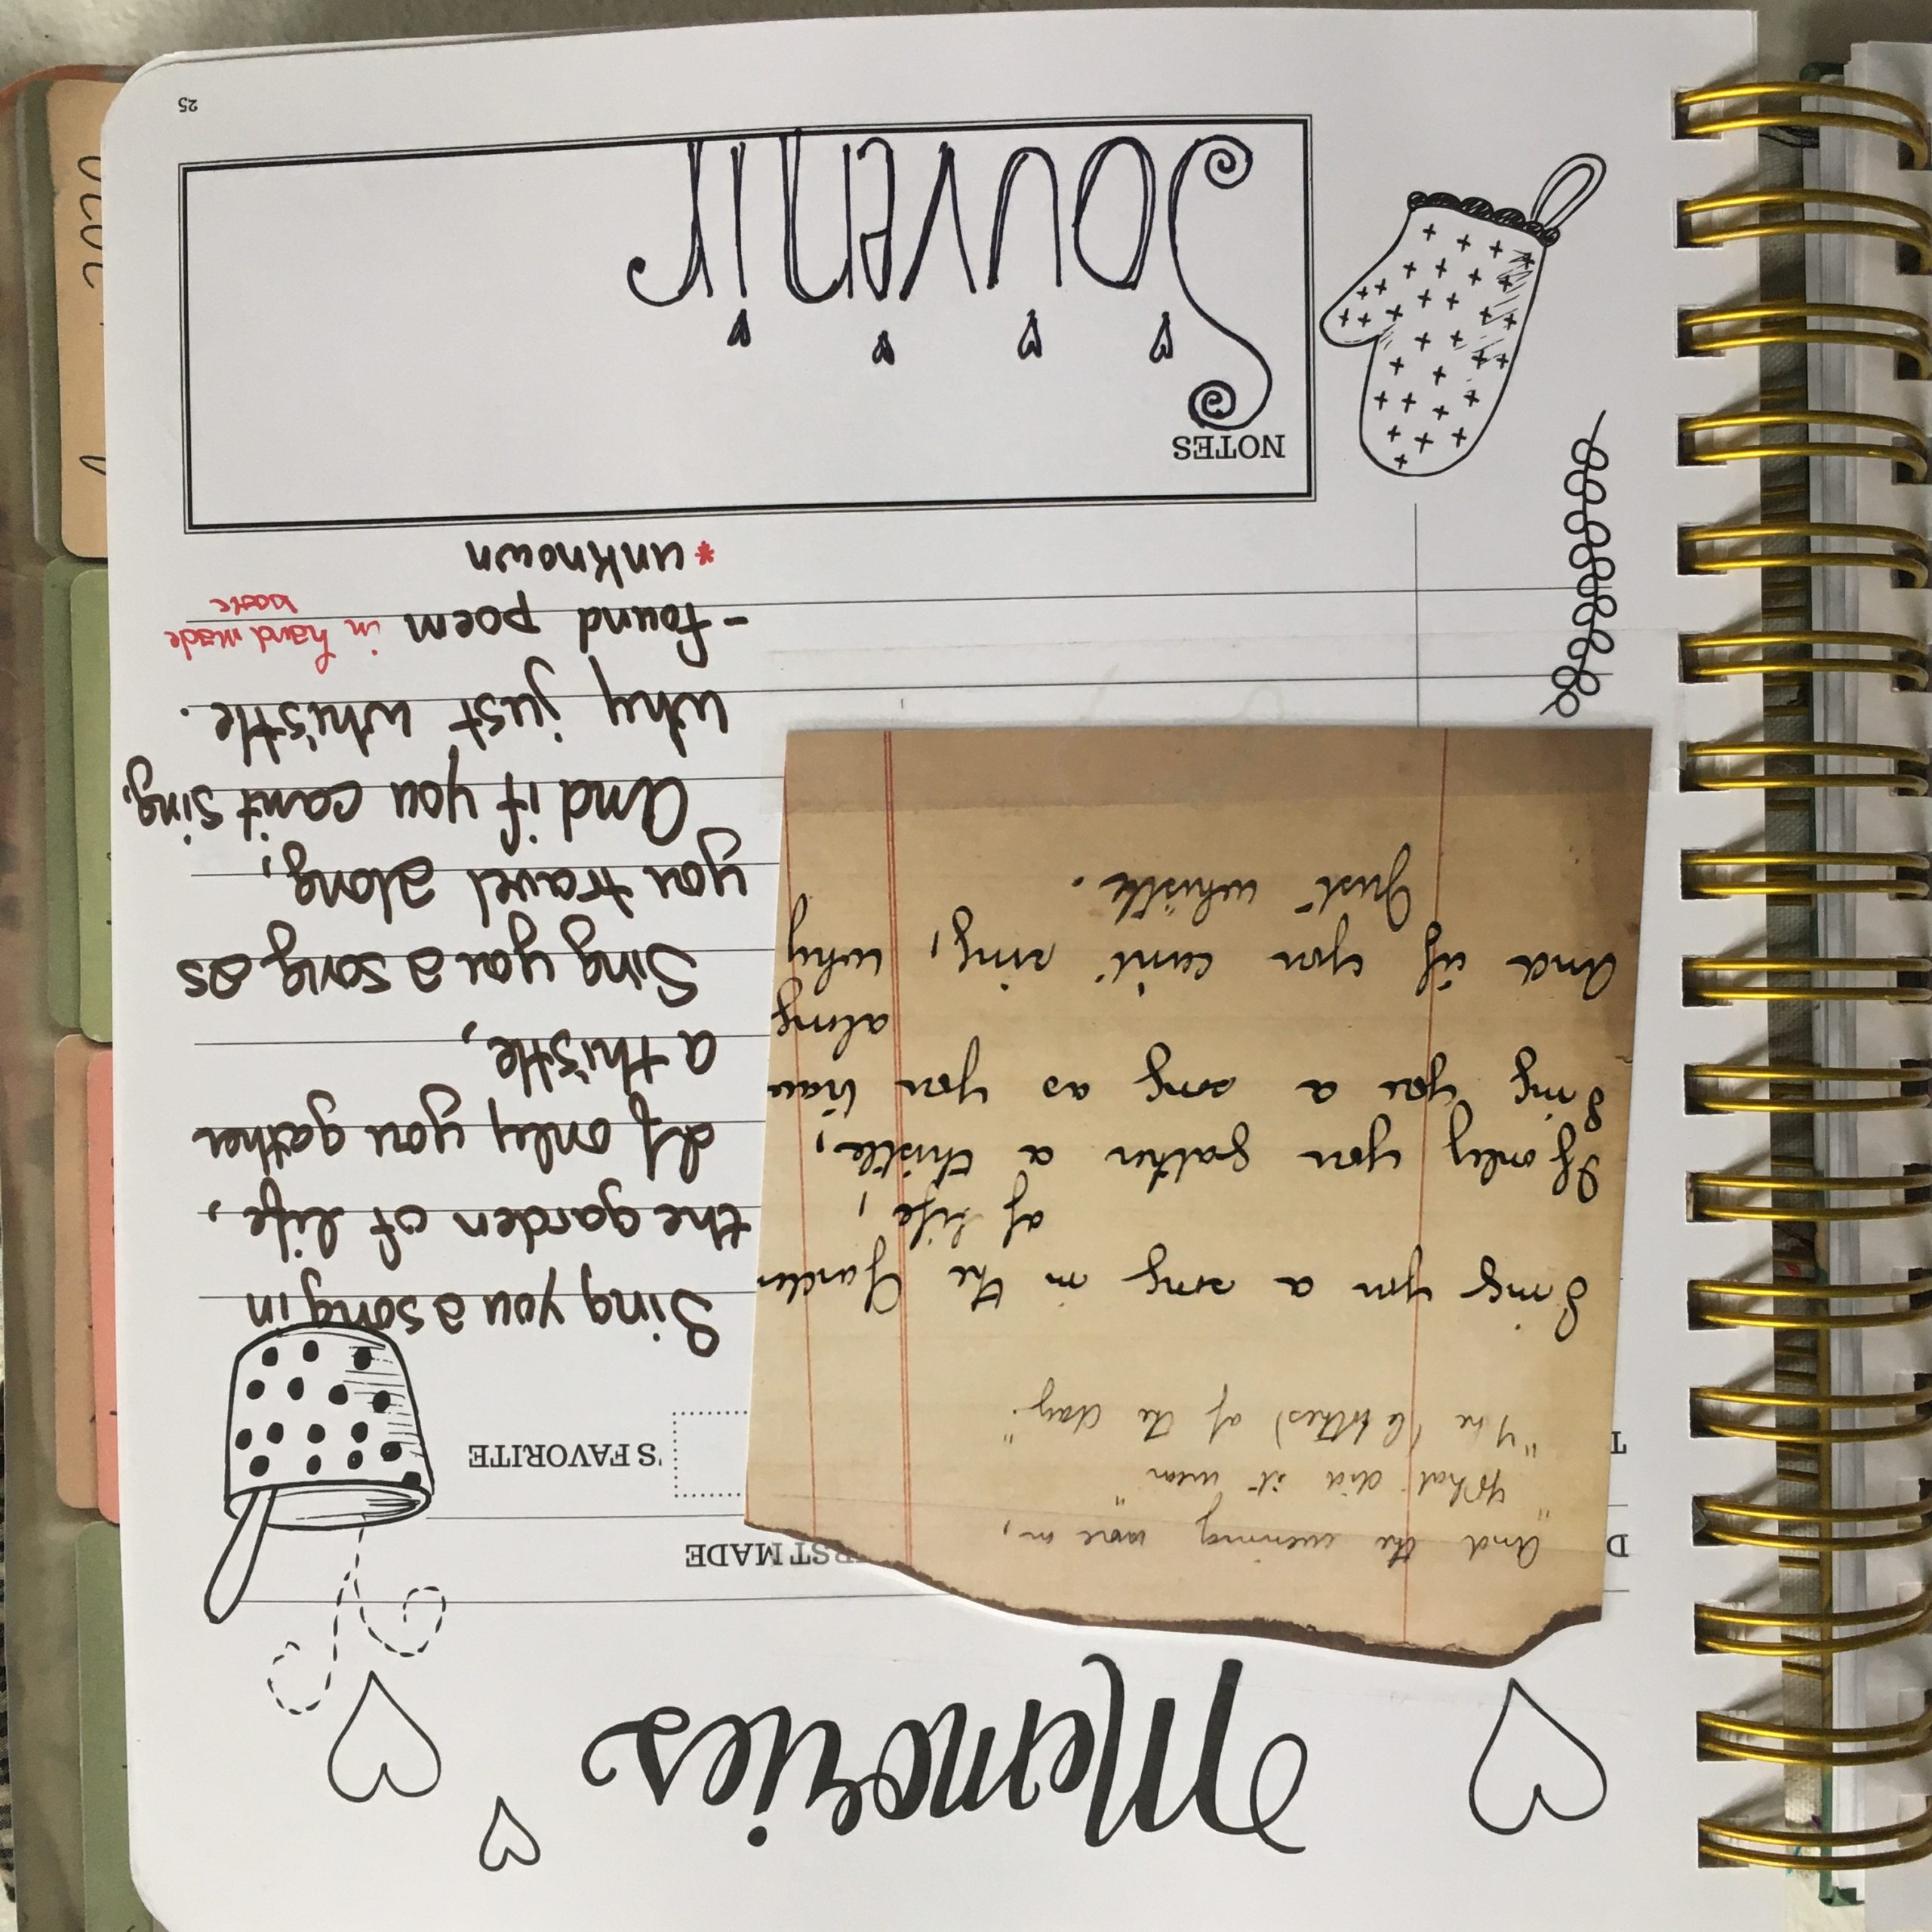 Memories
D
RST MADE
T
'S FAVORITE
"And the evening wore on,
"What did it wear"
"The (clothes) of the day."
Sing you a song in the Garden
of life,
If only you gather a thistle,
Sing you a song as you trave
along
And if you can't sing, why
Just whistle.
Sing you a song in
the garden of life,
If only you gather
a thistle,
Sing you a song as
you travel along,
And if you can't sing,
why just whistle.
- found poem in hand made
*unknown
NOTES
Souvenir
25